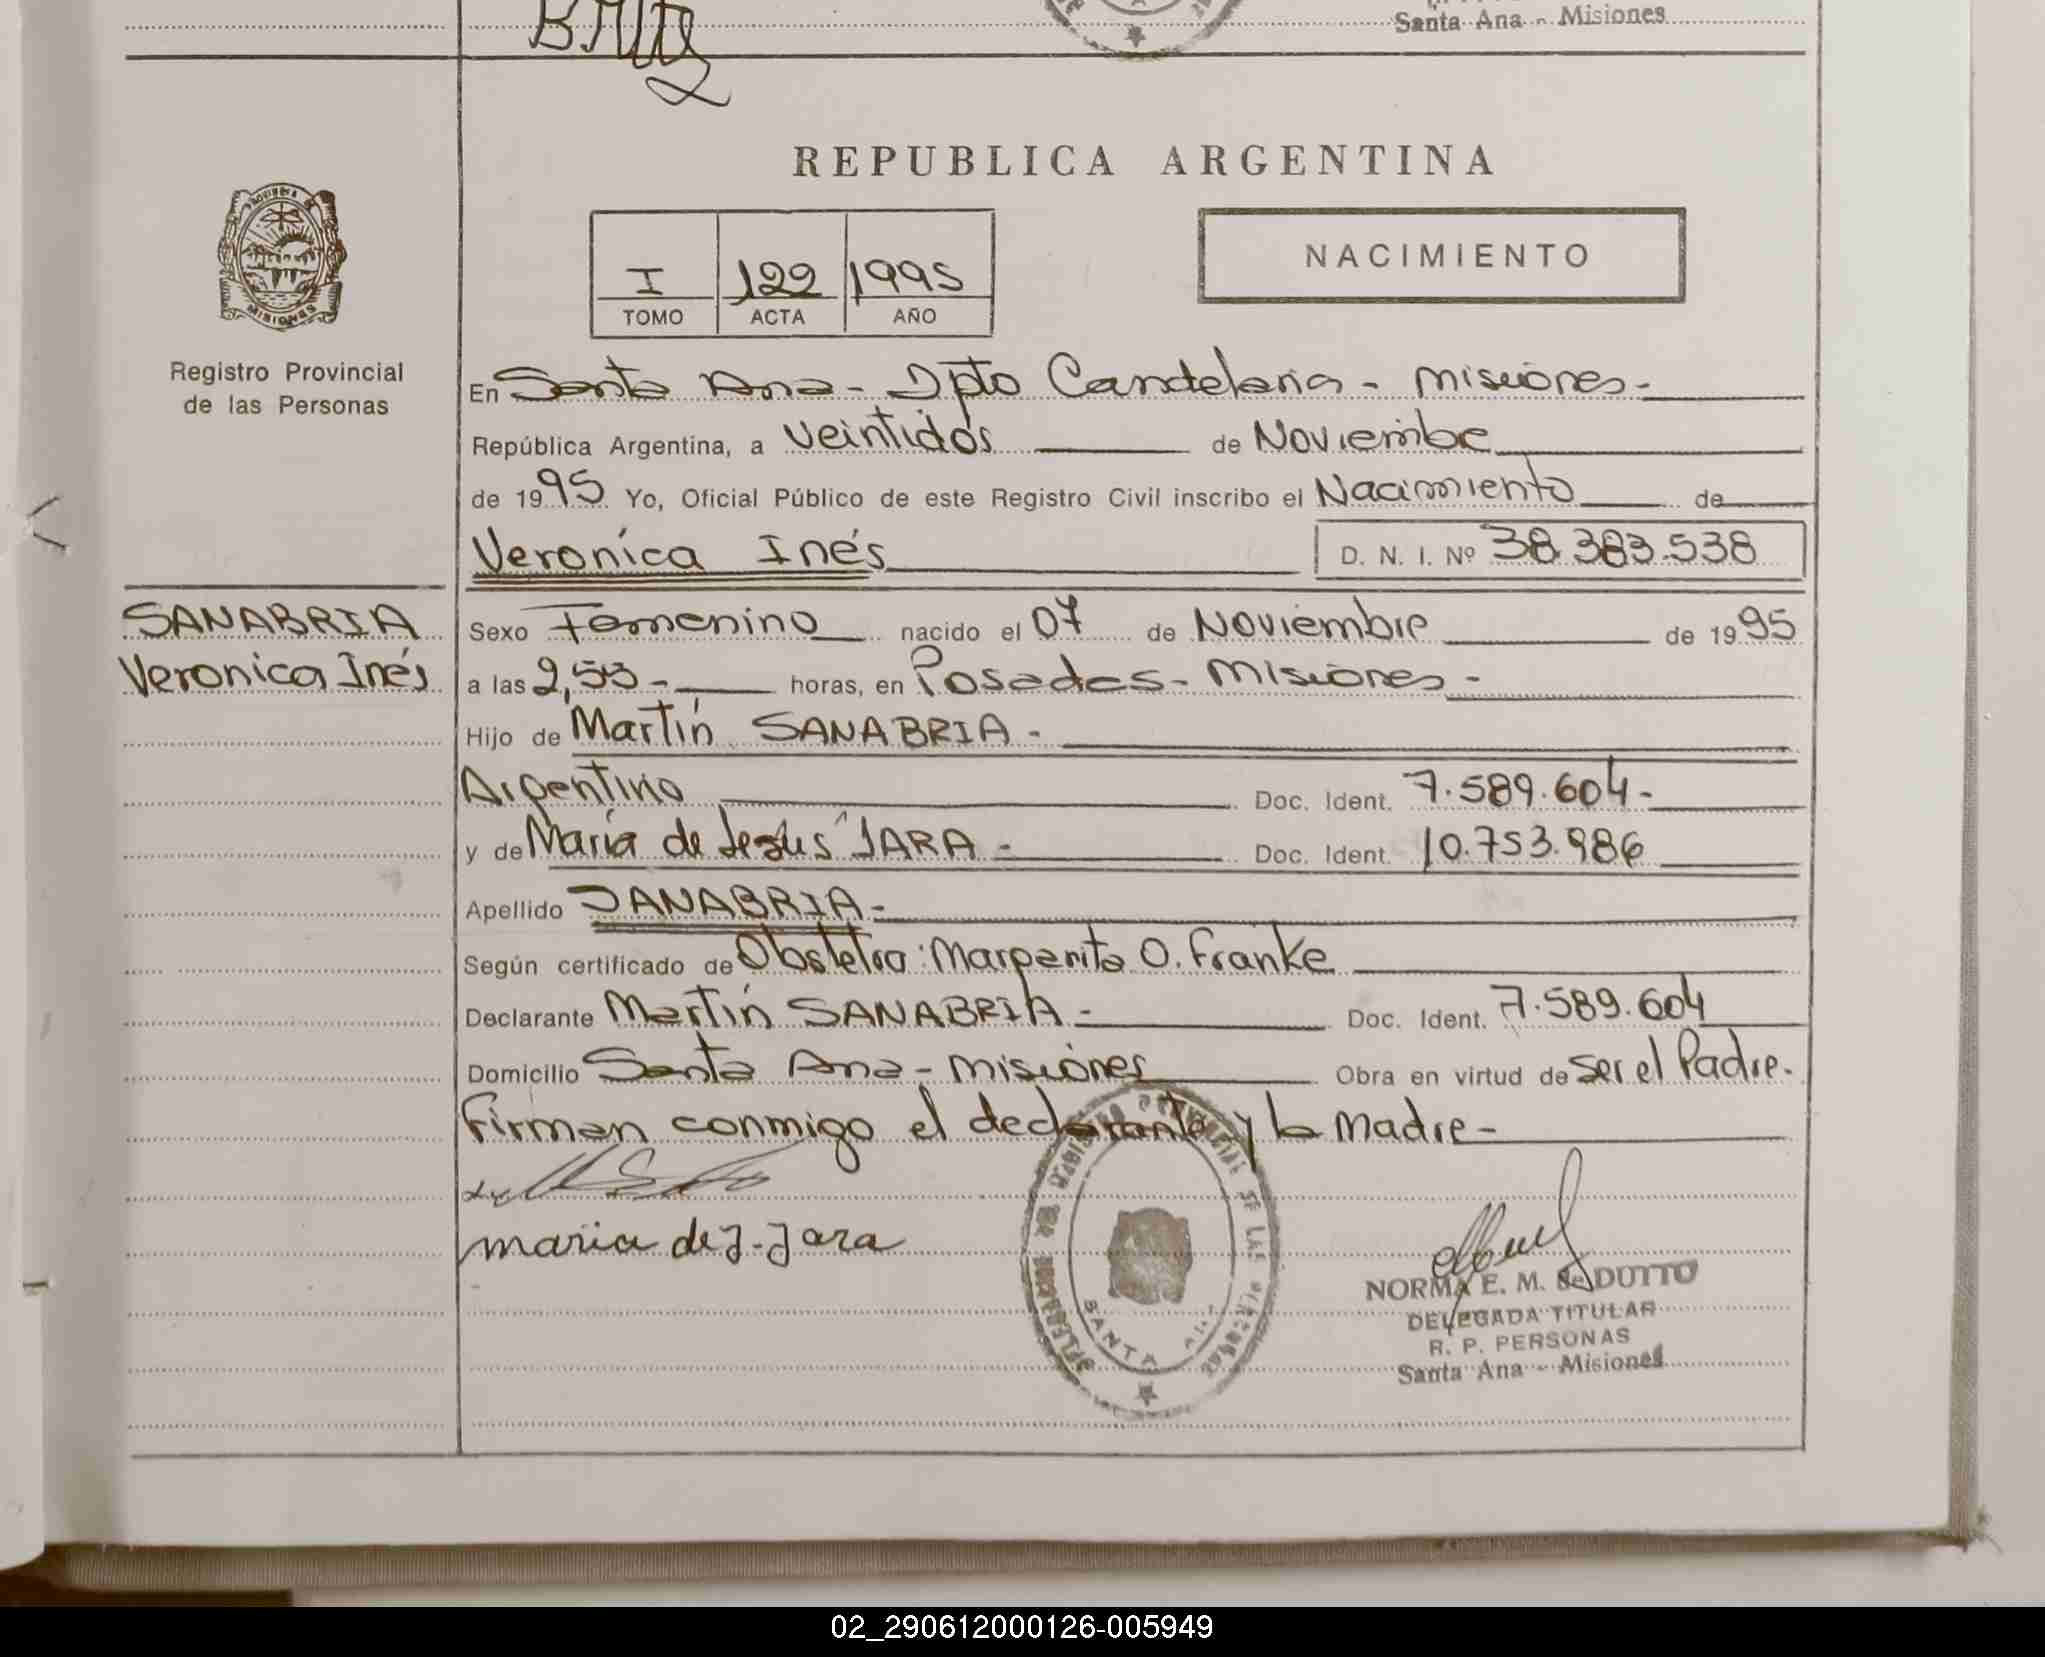 Santa Ana - Misiones
REPUBLICA ARGENTINA
I 122 1995
TOMO ACTA AÑO
NACIMIENTO
PROVINCIA DE
MISIONES
Registro Provincial
de las Personas
En Santa Ana - Dpto Candelaria - Misiones -
República Argentina, a veintidós de Noviembe
de 1995 Yo, Oficial Público de este Registro Civil inscribo el Nacimiento de
Veronica Inés D. N. I. Nº 38.383.538
SANABRIA
Veronica Inés
Sexo Femenino nacido el 07 de Noviembre de 1995
a las 2,55 - horas, en Posadas - Misiones -
Hijo de Martín SANABRIA -
Argentino Doc. Ident. 7.589.604 -
y de María de Jesús JARA - Doc. Ident. 10.753.986
Apellido SANABRIA -
Según certificado de Obstetra: Margarita O. Franke
Declarante Martín SANABRIA - Doc. Ident. 7.589.604
Domicilio Santa Ana - Misiones Obra en virtud de ser el Padre.
Firman conmigo el declarante y la Madre -
maria de J. Jara
SANTA ANA
NORMA E. M. de DUTTO
DELEGADA TITULAR
R. P. PERSONAS
Santa Ana - Misiones
02_290612000126-005949